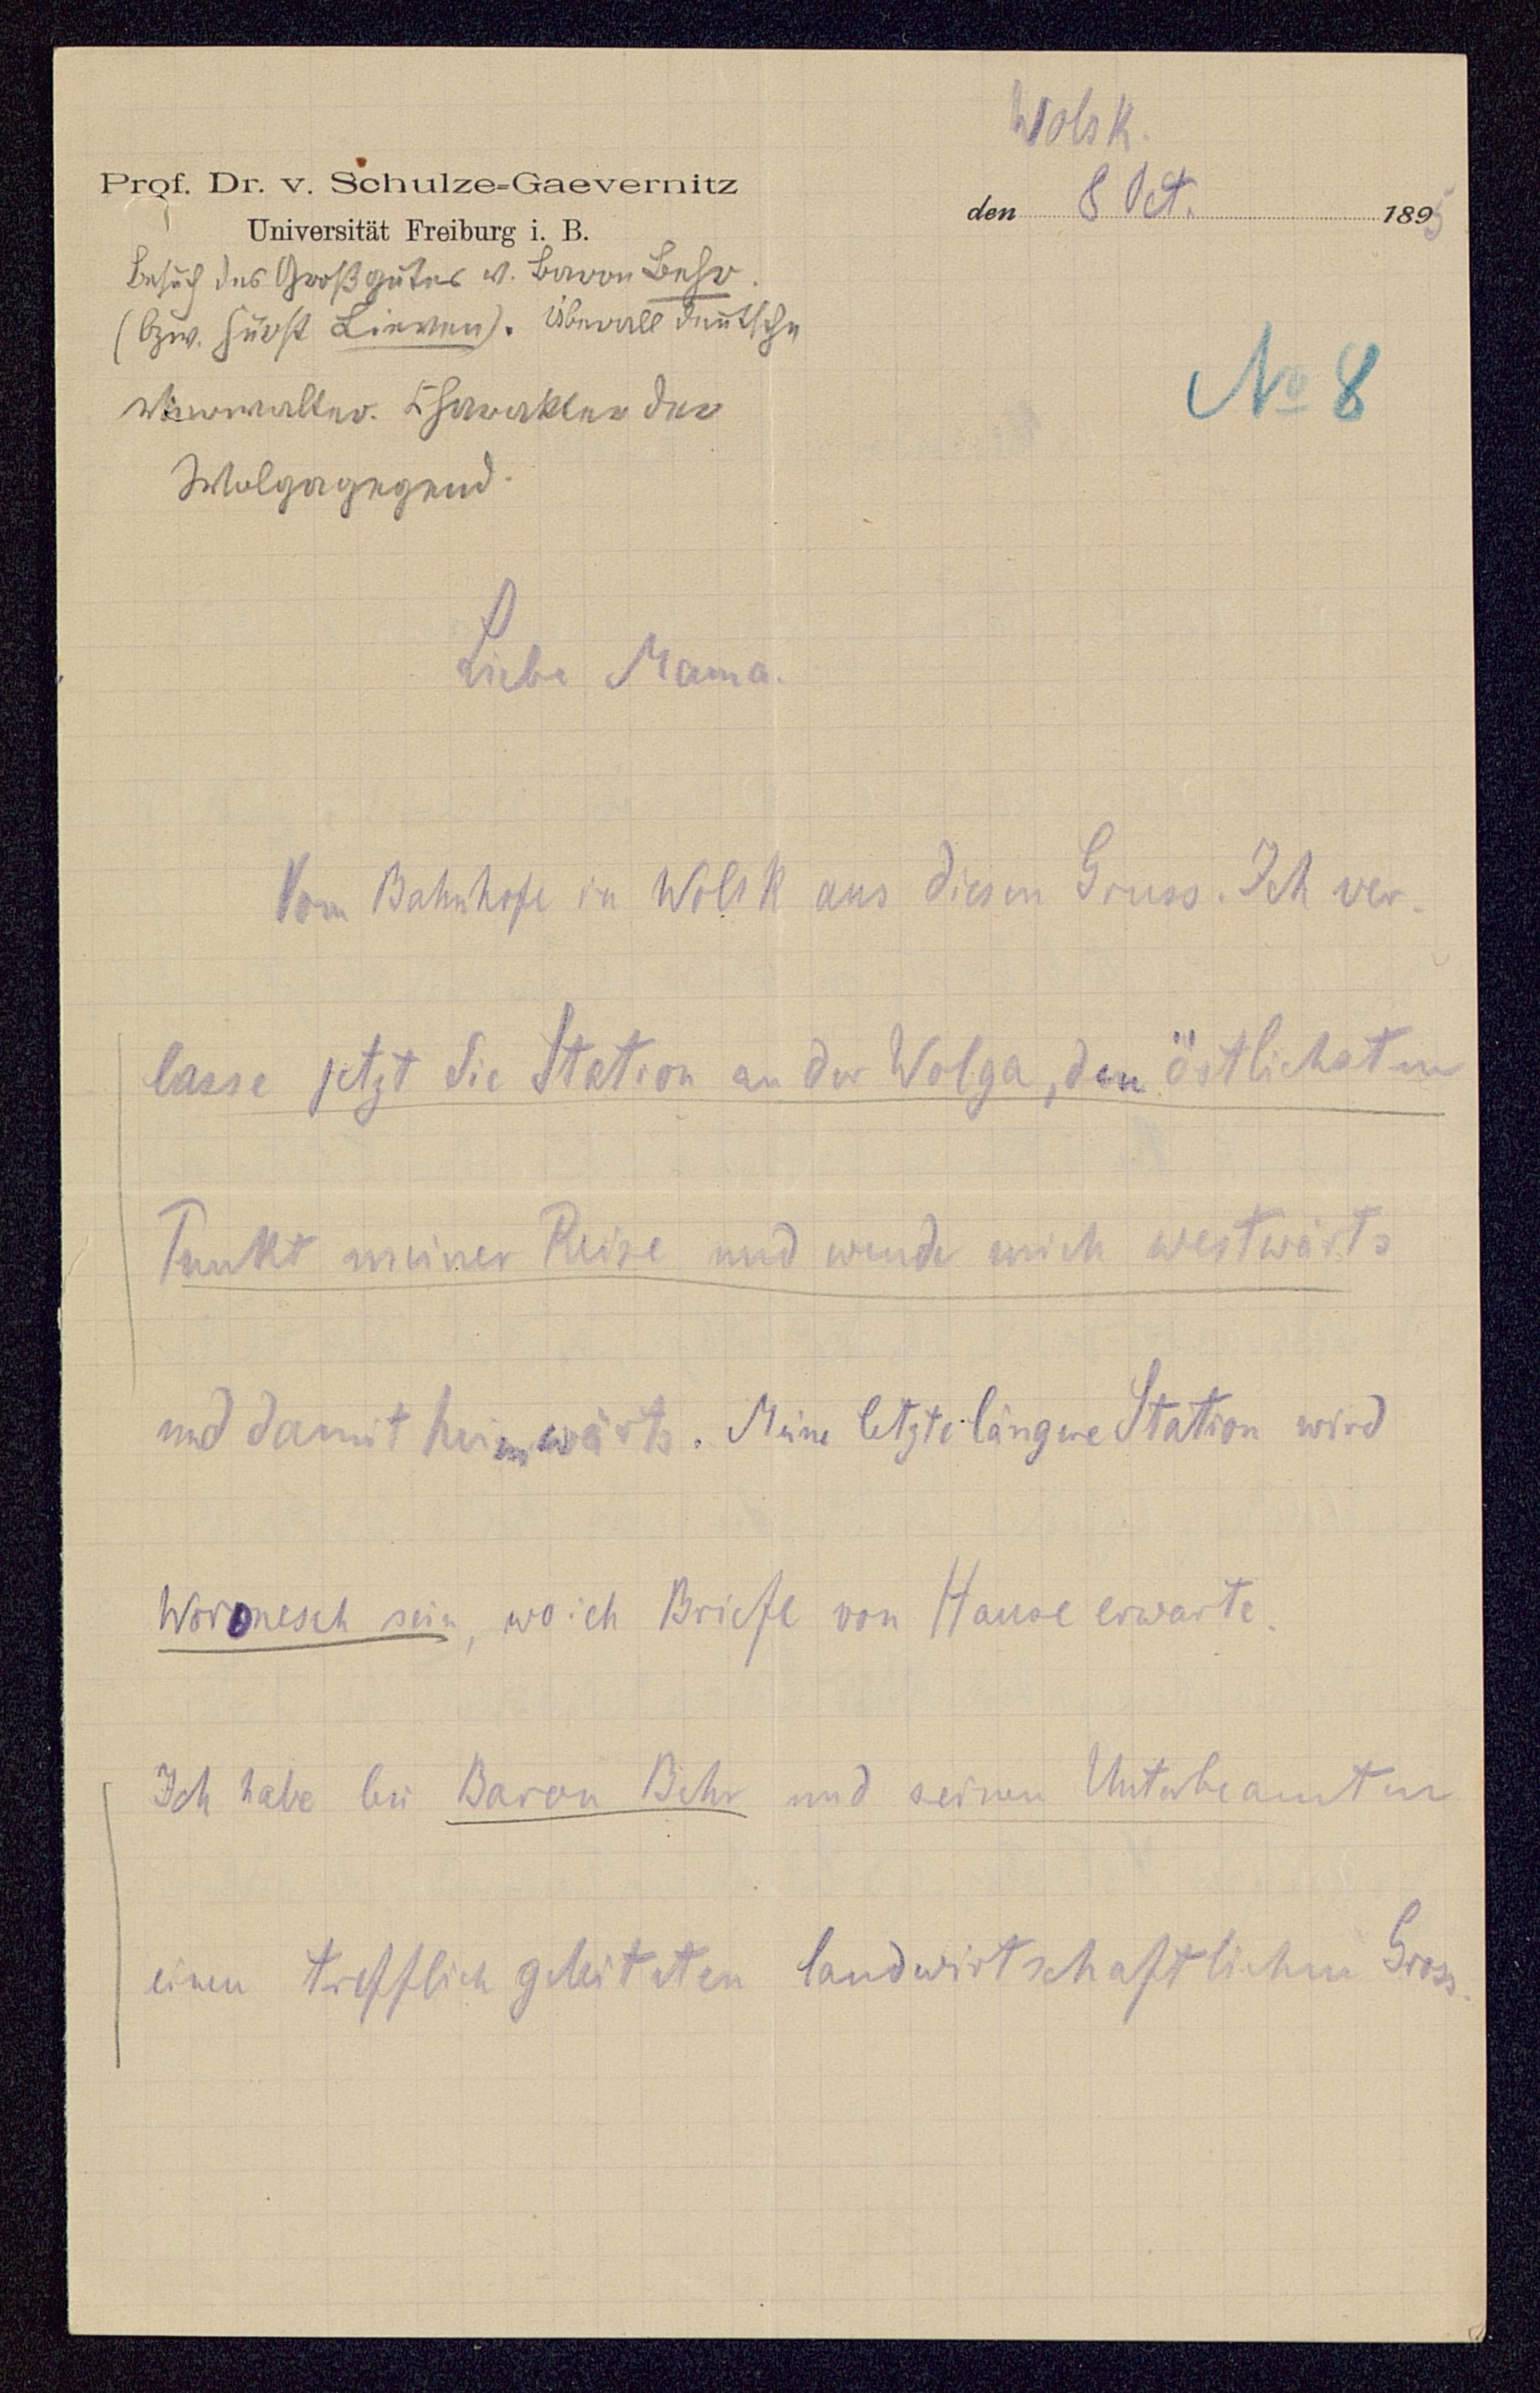 Wolsk.
Prof. Dr. v. Schulze-Gaevernitz
den 8 Oct. 1895
Universität Freiburg i. B.
Besuch des Großgutes v. Baron Behr.
(bzw. Fürst Lieven). Überall deutsche
Verwalter. Charakter der
Wolgagegend.
No 8
Liebe Mama.
Vom Bahnhofe in Wolsk aus diesen Gruss. Ich ver-
lasse jetzt die Station an der Wolga, den östlichsten
Punkt meiner Reise und wende mich westwärts
und damit heimwärts. Meine letzte längere Station wird
Woronesch sein, wo ich Briefe von Hause erwarte.
Ich habe bei Baron Behr und seinen Unterbeamten
einen trefflich geleiteten landwirtschaftlichen Gross-